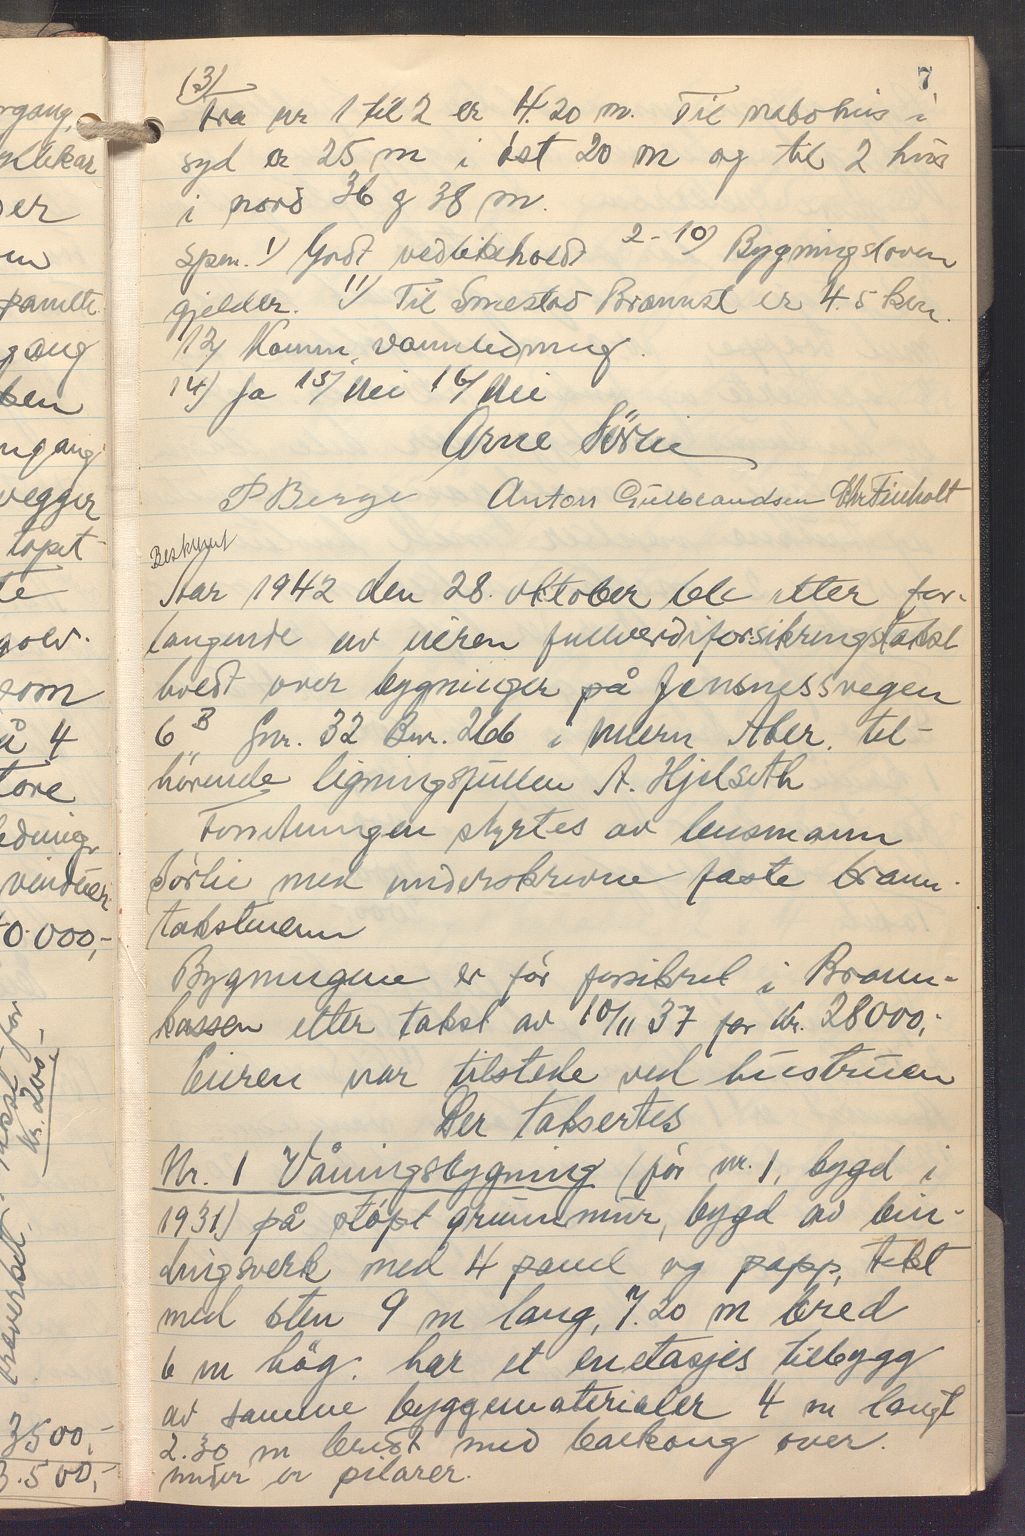 (3)
7
fra nr 1 til 2 er 4.20 m. Til nabohus i
syd er 25 m i øst 20 m og til 2 hus
i nord 36 g 38 m.
spm. 1) Godt vedlikeholdt 2-10) Bygningsloven
gjelder. 11) Til Smestad Brannst er 4.5 km.
12) Komm. vannledning.
14) Ja 15) Nei 16) Nei
Arne Sörlie
P Berge Anton Gulbrandsen Chr Finholt
Beskrevet
Aar 1942 den 28. oktober ble etter for-
langende av eieren fullverdiforsikringstakst
holdt over bygninger på Jonsnessvegen
6 B Gnr. 32 Bnr. 266 i Vestre Aker. til-
hörende ligningsfullm A. Hjelseth
Forretningen styrtes av lensmann
Sörlie med underskrevne faste brann-
takstmenn
Bygningene er för forsikret i Brann-
kassen etter takst av 10/11 37 for kr. 28000,-
Eieren var tilstede ved hustruen
Der taksertes
Nr. 1 Våningsbygning (för nr. 1, bygd i
1931) på stöpt grunnmur, bygd av bin-
dingsverk med 4 panel og papp, tekt
med sten 9 m lang, 7.20 m bred
6 m hög. har et enetasjes tilbygg
av samme byggematerialer 4 m langt
2.30 m bredt med balkong over.
under er pilarer.
rgang,
er
en
gang
ngang
vegger
tapet-
te
golv.
som
å 4
tore
ledning
vinduer
0.000,-
takst for
kr. 200,-
3500,-
3.500,-